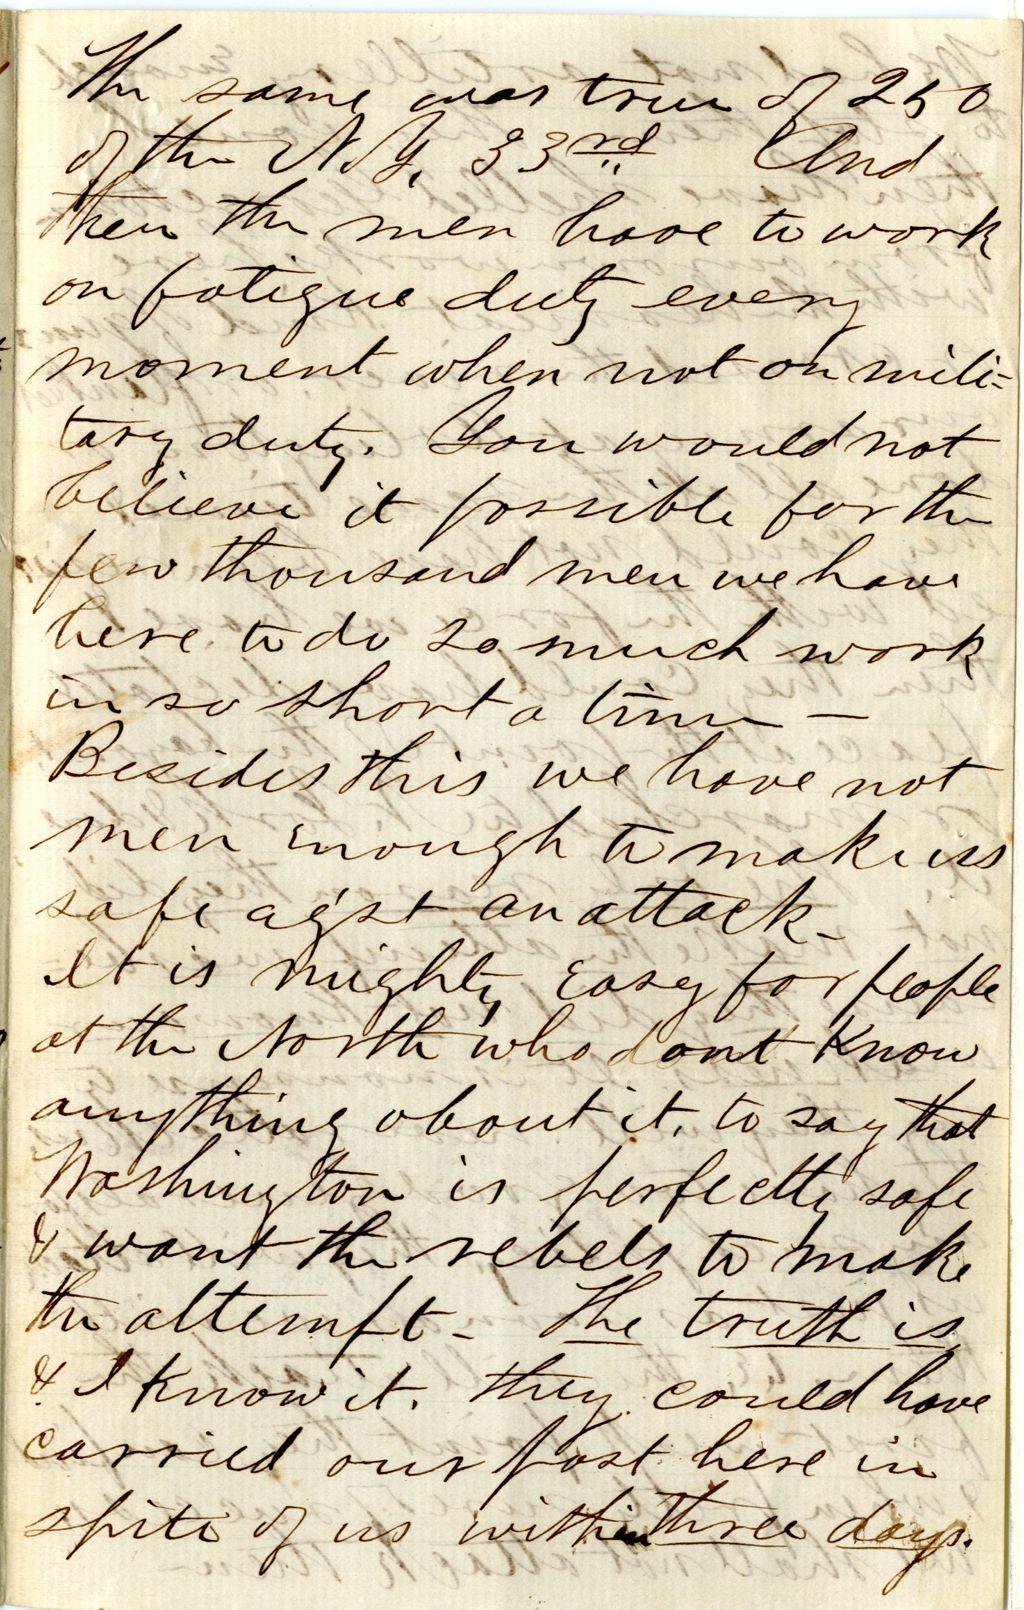 The same was true of 250
of the N.Y. 33rd And
then the men have to work
on fatigue duty every
moment when not on mili-
tary duty. You would not
believe it possible for the
few thousand men we have
here to do so much work
in so short a time —
Besides this we have not
men enough to make us
safe ag'st an attack -
It is mighty easy for people
at the North who dont know
anything about it, to say that
Washington is perfectly safe
& want the rebels to make
the attempt - The truth is
& I know it. they could have
carried our post here in
spite of us within three days.